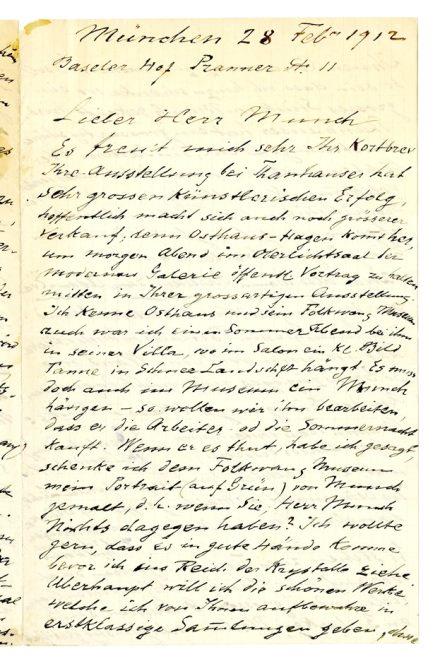 München 28 Febr 1912
Baseler Hof Pranner Str. 11
Lieber Herr Munch
Es freut mich sehr Ihr Kortbrev
Ihre Ausstellung bei Thannhauser hat
sehr grossen künstlerischen Erfolg,
hoffentlich macht sich auch noch grösserer
Verkauf, denn Osthaus-Hagen kommt her,
um morgen Abend im Oberlichtsaal der
modernen Galerie öffentl Vortrag zu halten
mitten in Ihrer grossartigen Ausstellung
Ich kenne Osthaus und sein Folkwang Museum
auch war ich einen Sommer Abend bei ihm
in seiner Villa, wo im Salon ein kl. Bild
Tanne in Schnee Landschaft hängt. Es muss
doch auch im Museum ein Munch
hängen – so wollen wir ihn bearbeiten,
dass er die Arbeiter od die Sommernacht
kauft. Wenn er es thut, habe ich gesagt,
schenke ich dem Folkwang Museum
mein Portrait (auf Grün) von Munch
gemalt, d.h. wenn Sie, Herr Munch
Nichts dagegen haben? Ich wollte
gern, dass es in gute Hände komme
bevor ich ins Reich der Krystalle ziehe
Überhaupt will ich die schönen Werke
welche ich von Ihnen aufbewahre in
erstklassige Sammlungen geben, ohne